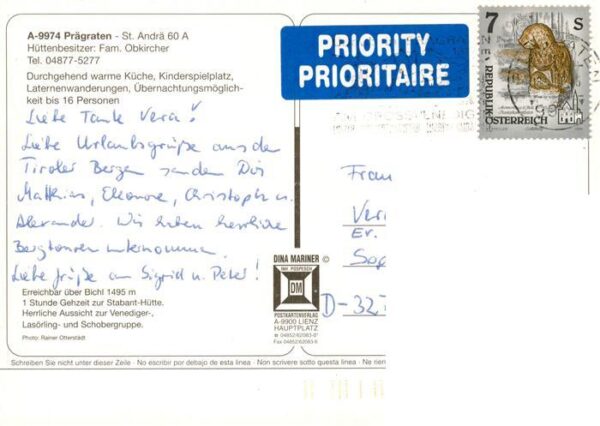 A-9974 Prägraten - St. Andrä 60 A
Hüttenbesitzer: Fam. Obkircher
Tel. 04877-5277
Durchgehend warme Küche, Kinderspielplatz,
Laternenwanderungen, Übernachtungsmöglich-
keit bis 16 Personen
Liebe Tante Vera!
Liebe Urlaubsgrüße aus den
Tiroler Bergen senden Dir
Matthias, Eleonore, Christoph u.
Alexander. Wir haben herrliche
Bergtouren unternommen.
Liebe Grüße an Sigrid u. Peter!
Erreichbar über Bichl 1495 m
1 Stunde Gehzeit zur Stabant-Hütte.
Herrliche Aussicht zur Venediger-,
Lasörling- und Schobergruppe.
Photo: Rainer Otterstädt
PRIORITY
PRIORITAIRE
7 S
REPUBLIK
ÖSTERREICH
Frau
Ver
Ev.
Sop
D-32
DINA MARINER ©
INH. POSPESCH
DM
POSTKARTENVERLAG
A-9900 LIENZ
HAUPTPLATZ
04852/62083-8
Fax 04852/62083-8
Schreiben Sie nicht unter dieser Zeile - No escribir por debajo de esta linea - Non scrivere sotto questa linea - Ne rien